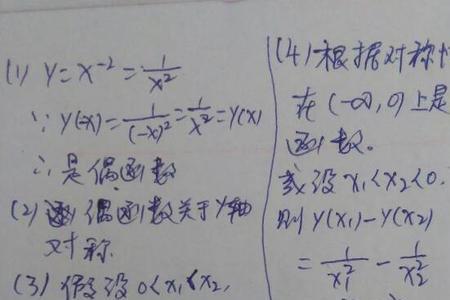 (1) y=x⁻²=1/x²
∵y(-x)=1/(-x)²=1/x²=y(x)
∴是偶函数
(2) 偶函数关于y轴
对称
(3) 假设0<x₁<x₂,
(4)根据对称性
在(-∞,0)上是
函数.
或设x₁<x₂<0.
则y(x₁)-y(x₂)
=1/x₁²-1/x₂²